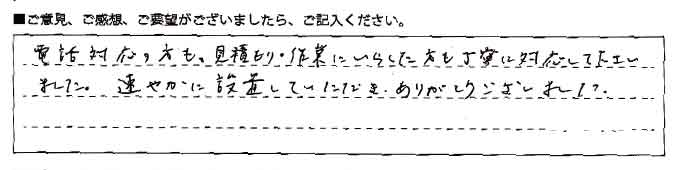 ■ご意見、ご感想、ご要望がございましたら、ご記入ください。
電話対応の方も、見積もり・作業にいらした方も丁寧に対応して下さい
ました。速やかに設置していただき、ありがとうございました。